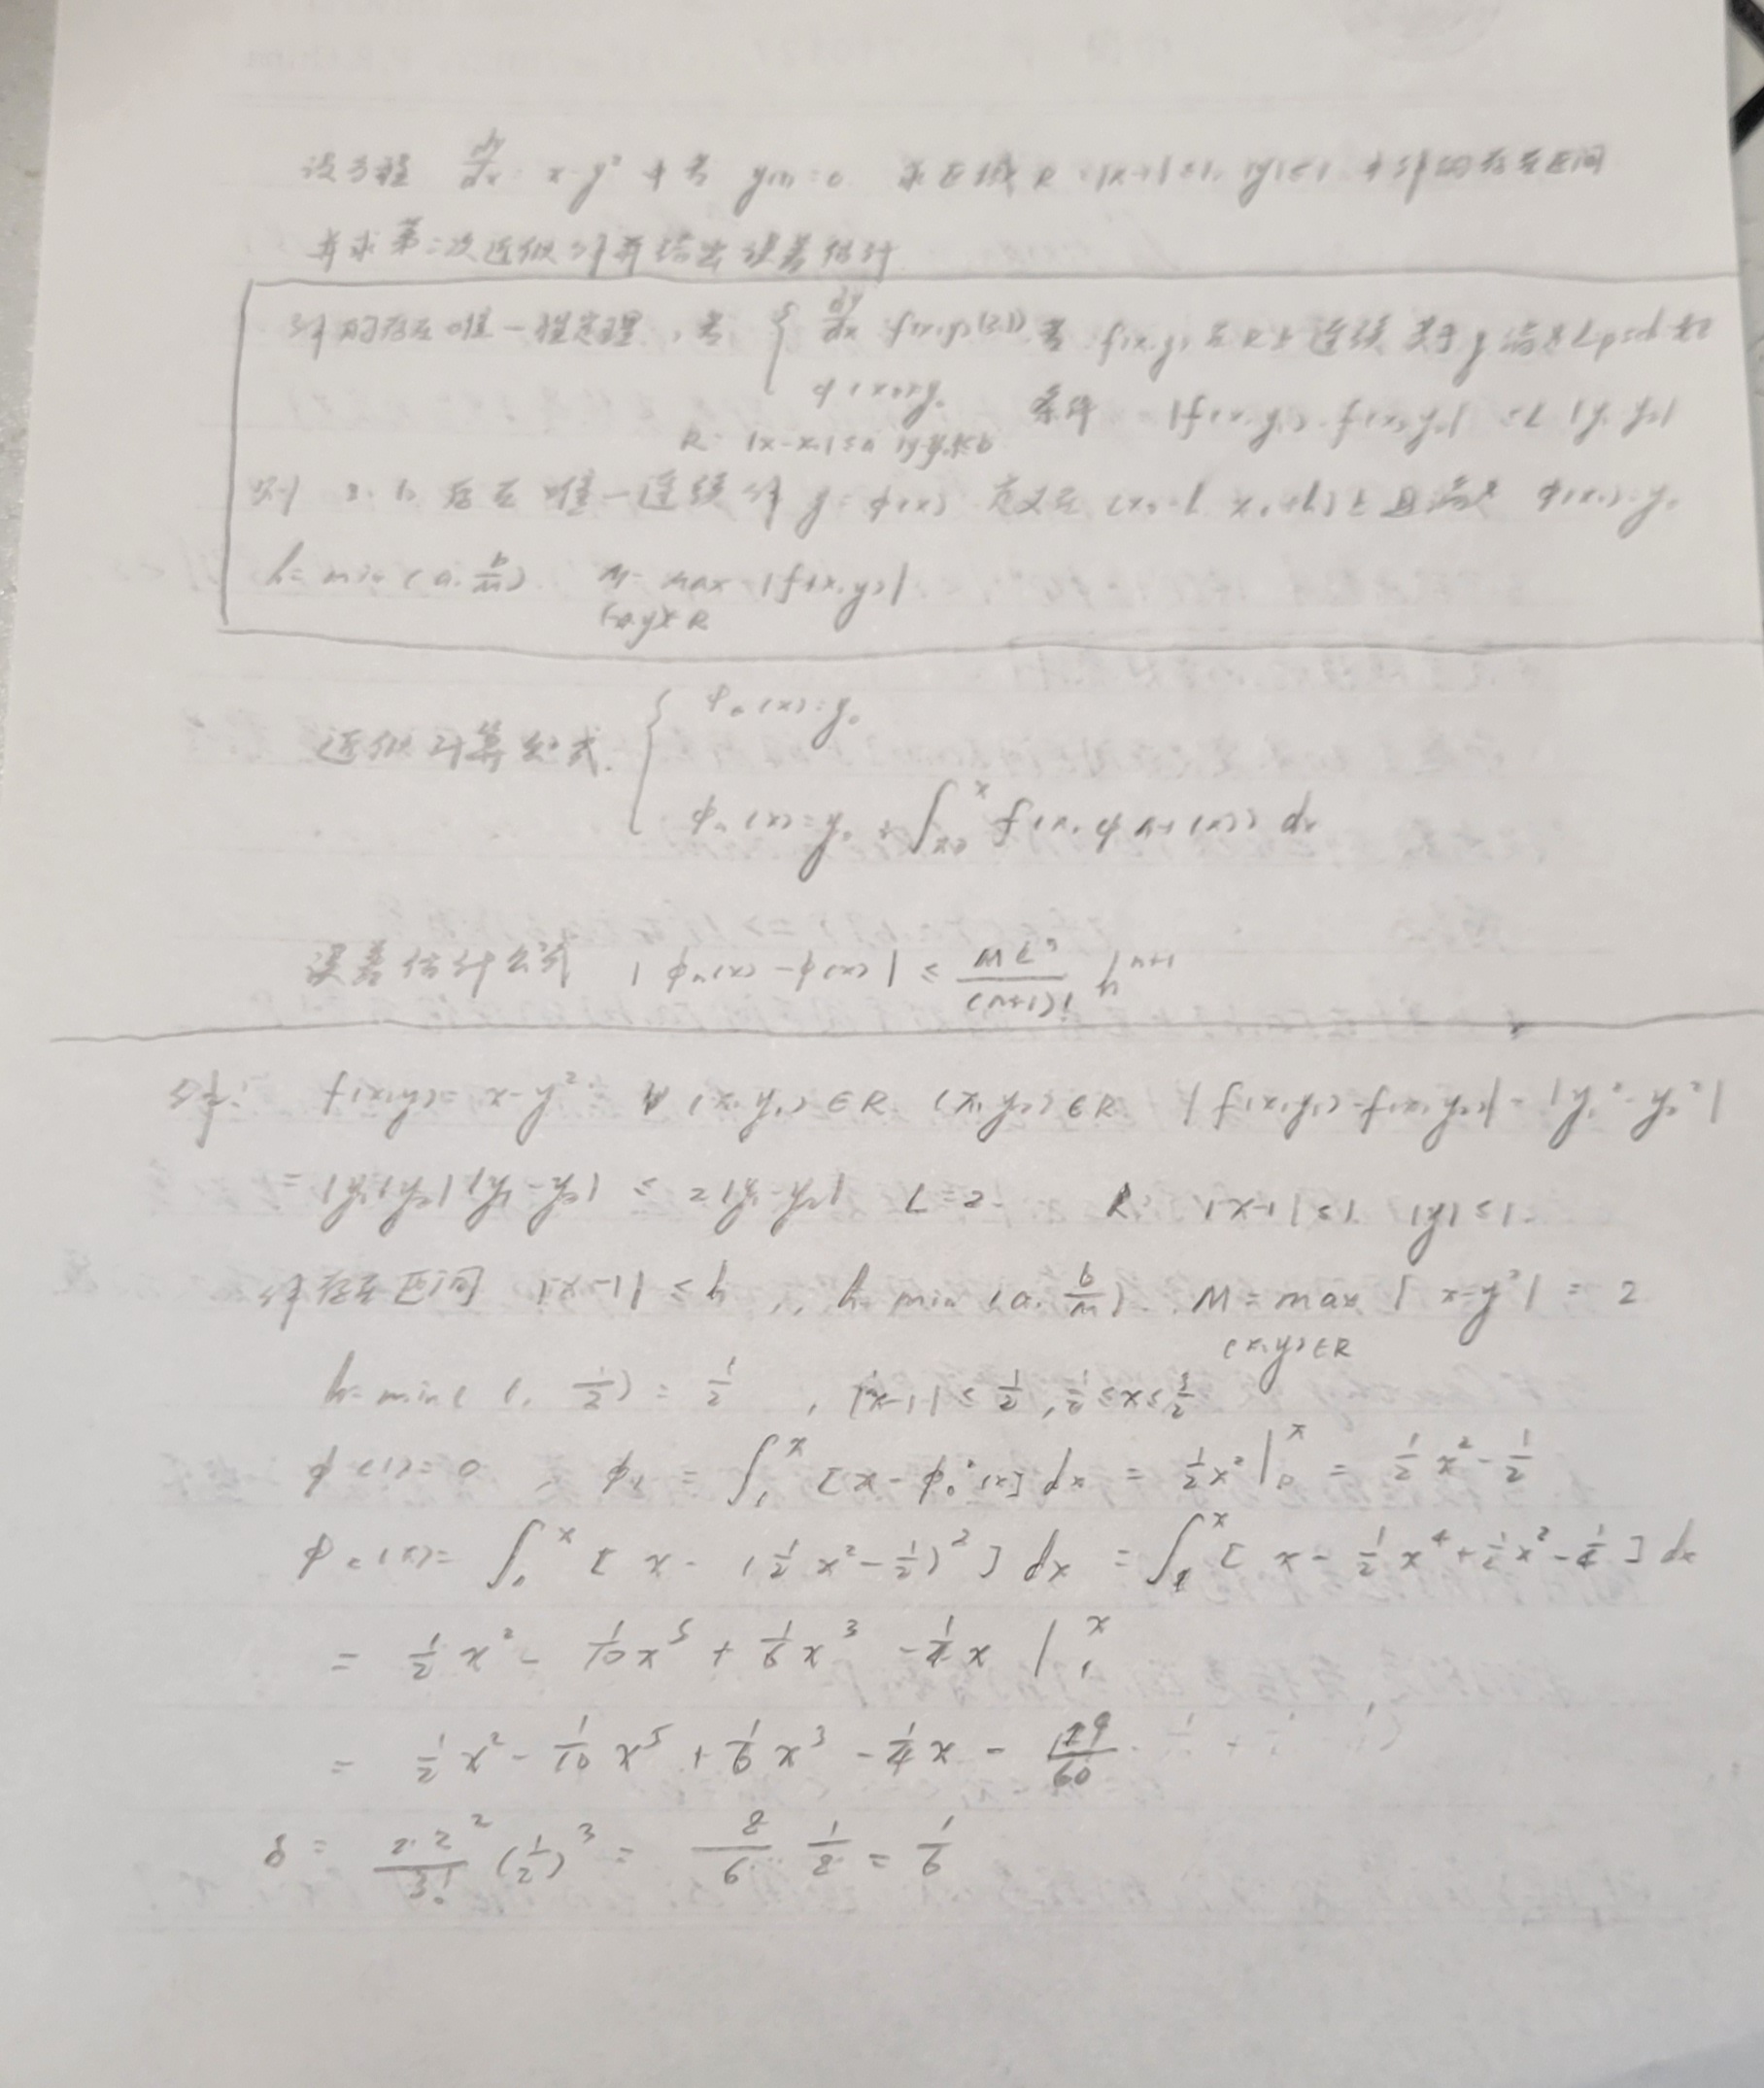 设方程 dy/dx = x-y² 并考 y(1)=0 求区域 R: |x-1|≤1, |y|≤1 中解的存在区间
并求第二次近似解并给出误差估计
解的存在唯一性定理,考 { dy/dx = f(x,y) (3.1) 若 f(x,y) 在R上连续 关于y满足
φ(x₀)=y₀ 条件 |f(x,y₁)-f(x,y₂)| ≤L |y₁-y₂|
R: |x-x₀|≤a |y-y₀|≤b
则 3.1 存在唯一连续解 y=φ(x) 定义在 (x₀-h, x₀+h)上且满足 φ(x₀)=y₀
h= min(a, b/m) M= max |f(x,y)|
(x,y)∈R
近似计算公式. { φ₀(x)=y₀
φₙ(x)=y₀+∫_{x₀}^{x} f(x, φₙ₋₁(x)) dx
误差估计公式 |φₙ(x)-φ(x)| ≤ MLⁿ/(n+1)! hⁿ⁺¹
解: f(x,y)= x-y² ∀ (x,y₁)∈R (x,y₂)∈R |f(x,y₁)-f(x,y₂)| = |y₁²-y₂²|
= |y₁+y₂| |y₁-y₂| ≤ 2|y₁-y₂| L=2. R: |x-1|≤1 |y|≤1.
解存在区间 |x-1|≤h, h= min(a, b/m). M= max |x-y²| = 2
(x,y)∈R
h= min(1, 1/2) = 1/2 , |x-1|≤1/2, 1/2≤x≤3/2
φ(1)=0 , φ₁ = ∫₁ˣ [x-φ₀²(x)] dx = 1/2x²|₀ˣ = 1/2x²-1/2
φ₂(x)= ∫₁ˣ [x-(1/2x²-1/2)²] dx = ∫₁ˣ[x-1/2x⁴+1/2x²-1/4] dx
= 1/2x²-1/10x⁵+1/6x³-1/4x |₁ˣ
= 1/2x²-1/10x⁵+1/6x³-1/4x-19/60
δ= 2·2²/3! (1/2)³ = 8/6 · 1/8 = 1/6